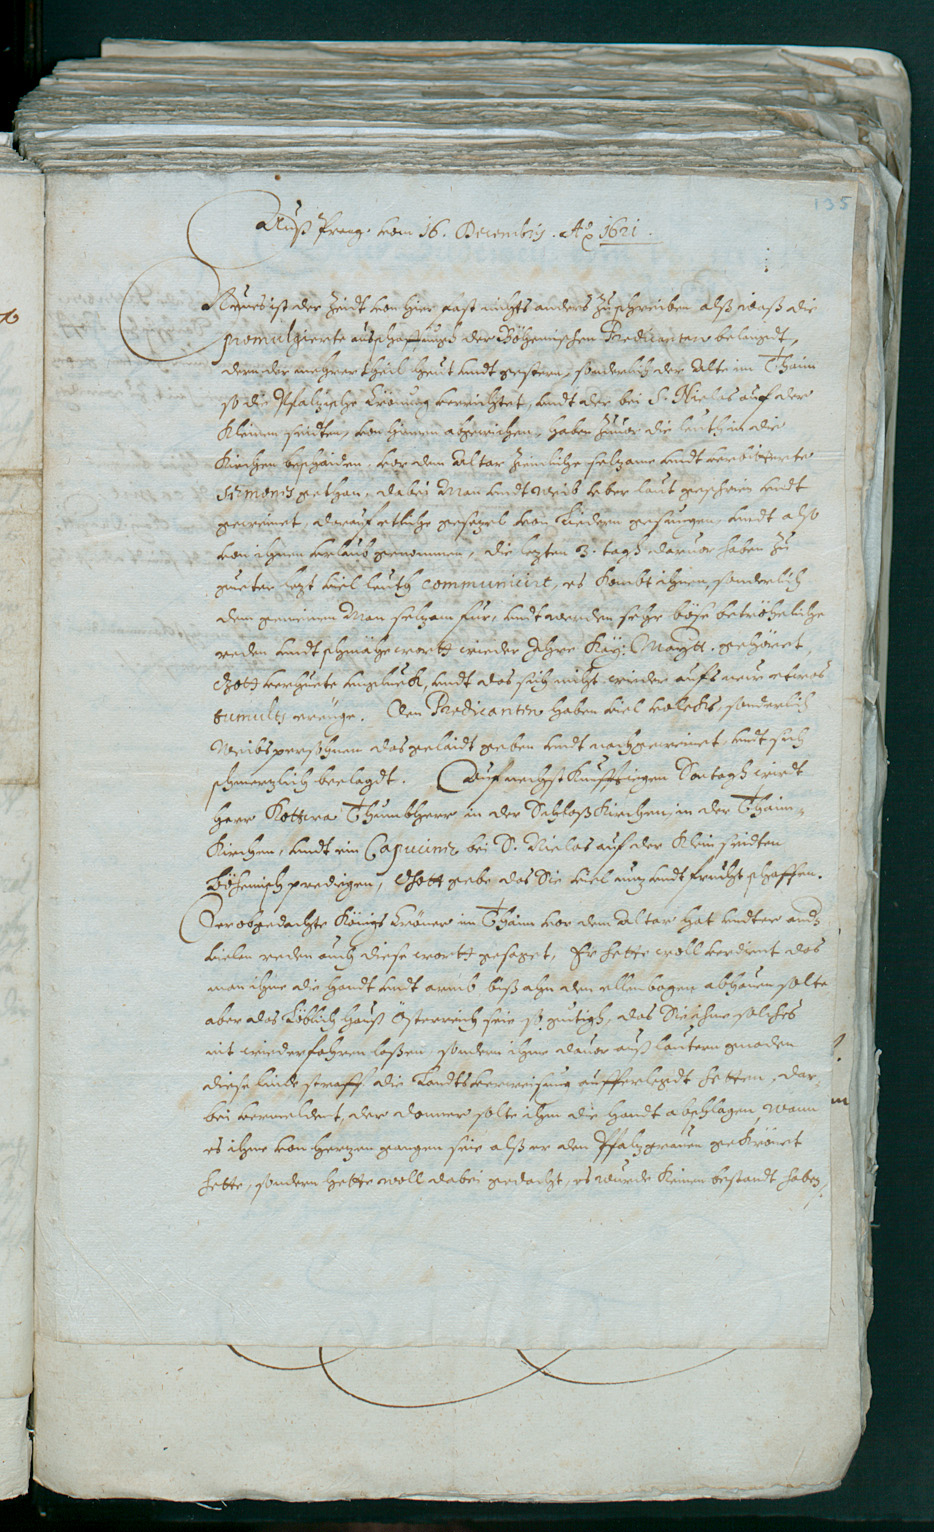 135
Auß Prag vom 16. Decembris. Aō 1621.
Neues ist der Zeidt von hier fast nichts anders zu schreiben alß waß die
promulgierte ausschaffungh der Böhemischen Predicanten belangdt,
deren der mehrer theil heut undt gestern, sonderlich der Alte im Thain
so die Pfalzische Crönung verrichtet, undt der bei S. Niclas auf der
Kleinen seidten, von hinnen abgewichen, haben zuvor die leuth in die
Kirchen bescheiden, vor dem Altar zimliche selzame undt verbitterte
Sermonis gethan, dabei Man undt Weib uber laut geschrien undt
geweinet, darauf etliche gesezel von Liedern gesungen, undt also
von ihnen verlaub genommen, die lezten 3. tagh darvor haben zu
gueter lezt viel leuth communicirt, es kombt ihnen, sonderlich
dem gemeinen Man selzam für, undt werden sehr böse betröheliche
reden undt schmähe wortt wieder Ihre Kay: Maytt. gehöret,
Gott verhuete ungluck, undt das sich nicht wieder aufs neue etwas
tumults erreuge. Den Predicanten haben viel volcks, sonderlich
Weibspershonen das gelaidt geben undt nachgeweinet, undt sich
schmerzlich beclagdt. Auf nechst künfftigen Sontagh wirdt
Herr Kottwa Thumbherr in der Schloß Kirchen, in der Thain-
Kirchen, undt ein Capuciner bei S. Niclas auf der Klein seidten
Böhemisch predigen, Gott gebe das Sie viel nuz undt frucht schaffen.
Der obgedachte Königs Cröner im Thain vor dem Altar hat undter andern
vielen reden auch diese wortt gesaget, Er hette woll verdient das
man ihme die handt undt armb biß ahn den ellenbogen abhauen solte
aber das Löblich hauß Österreich seie so guetigh, das Sie ihme solches
nit wiederfahren laßen, sondern ihme davor auß lautern gnaden
diese linde straff die Landtsverweisung aufferlegdt hetten, dar-
bei vermeldent, der donner solte ihm die handt abschlagen, wann
es ihme von herzen gangen seie alß er den Pfalzgraven gekrönet
hette, sondern hette woll dabei gedacht, es wurde keinen bestandt haben.